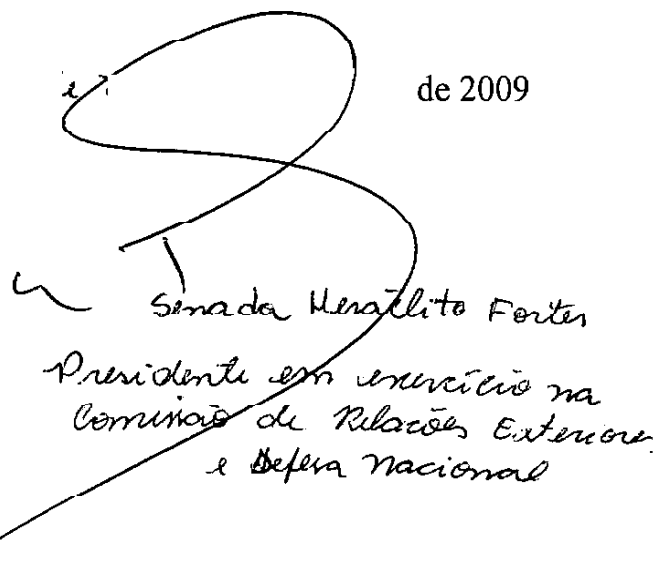 de 2009
Senador Heráclito Fortes
Presidente em exercício na
Comissão de Relações Exteriores
e Defesa Nacional